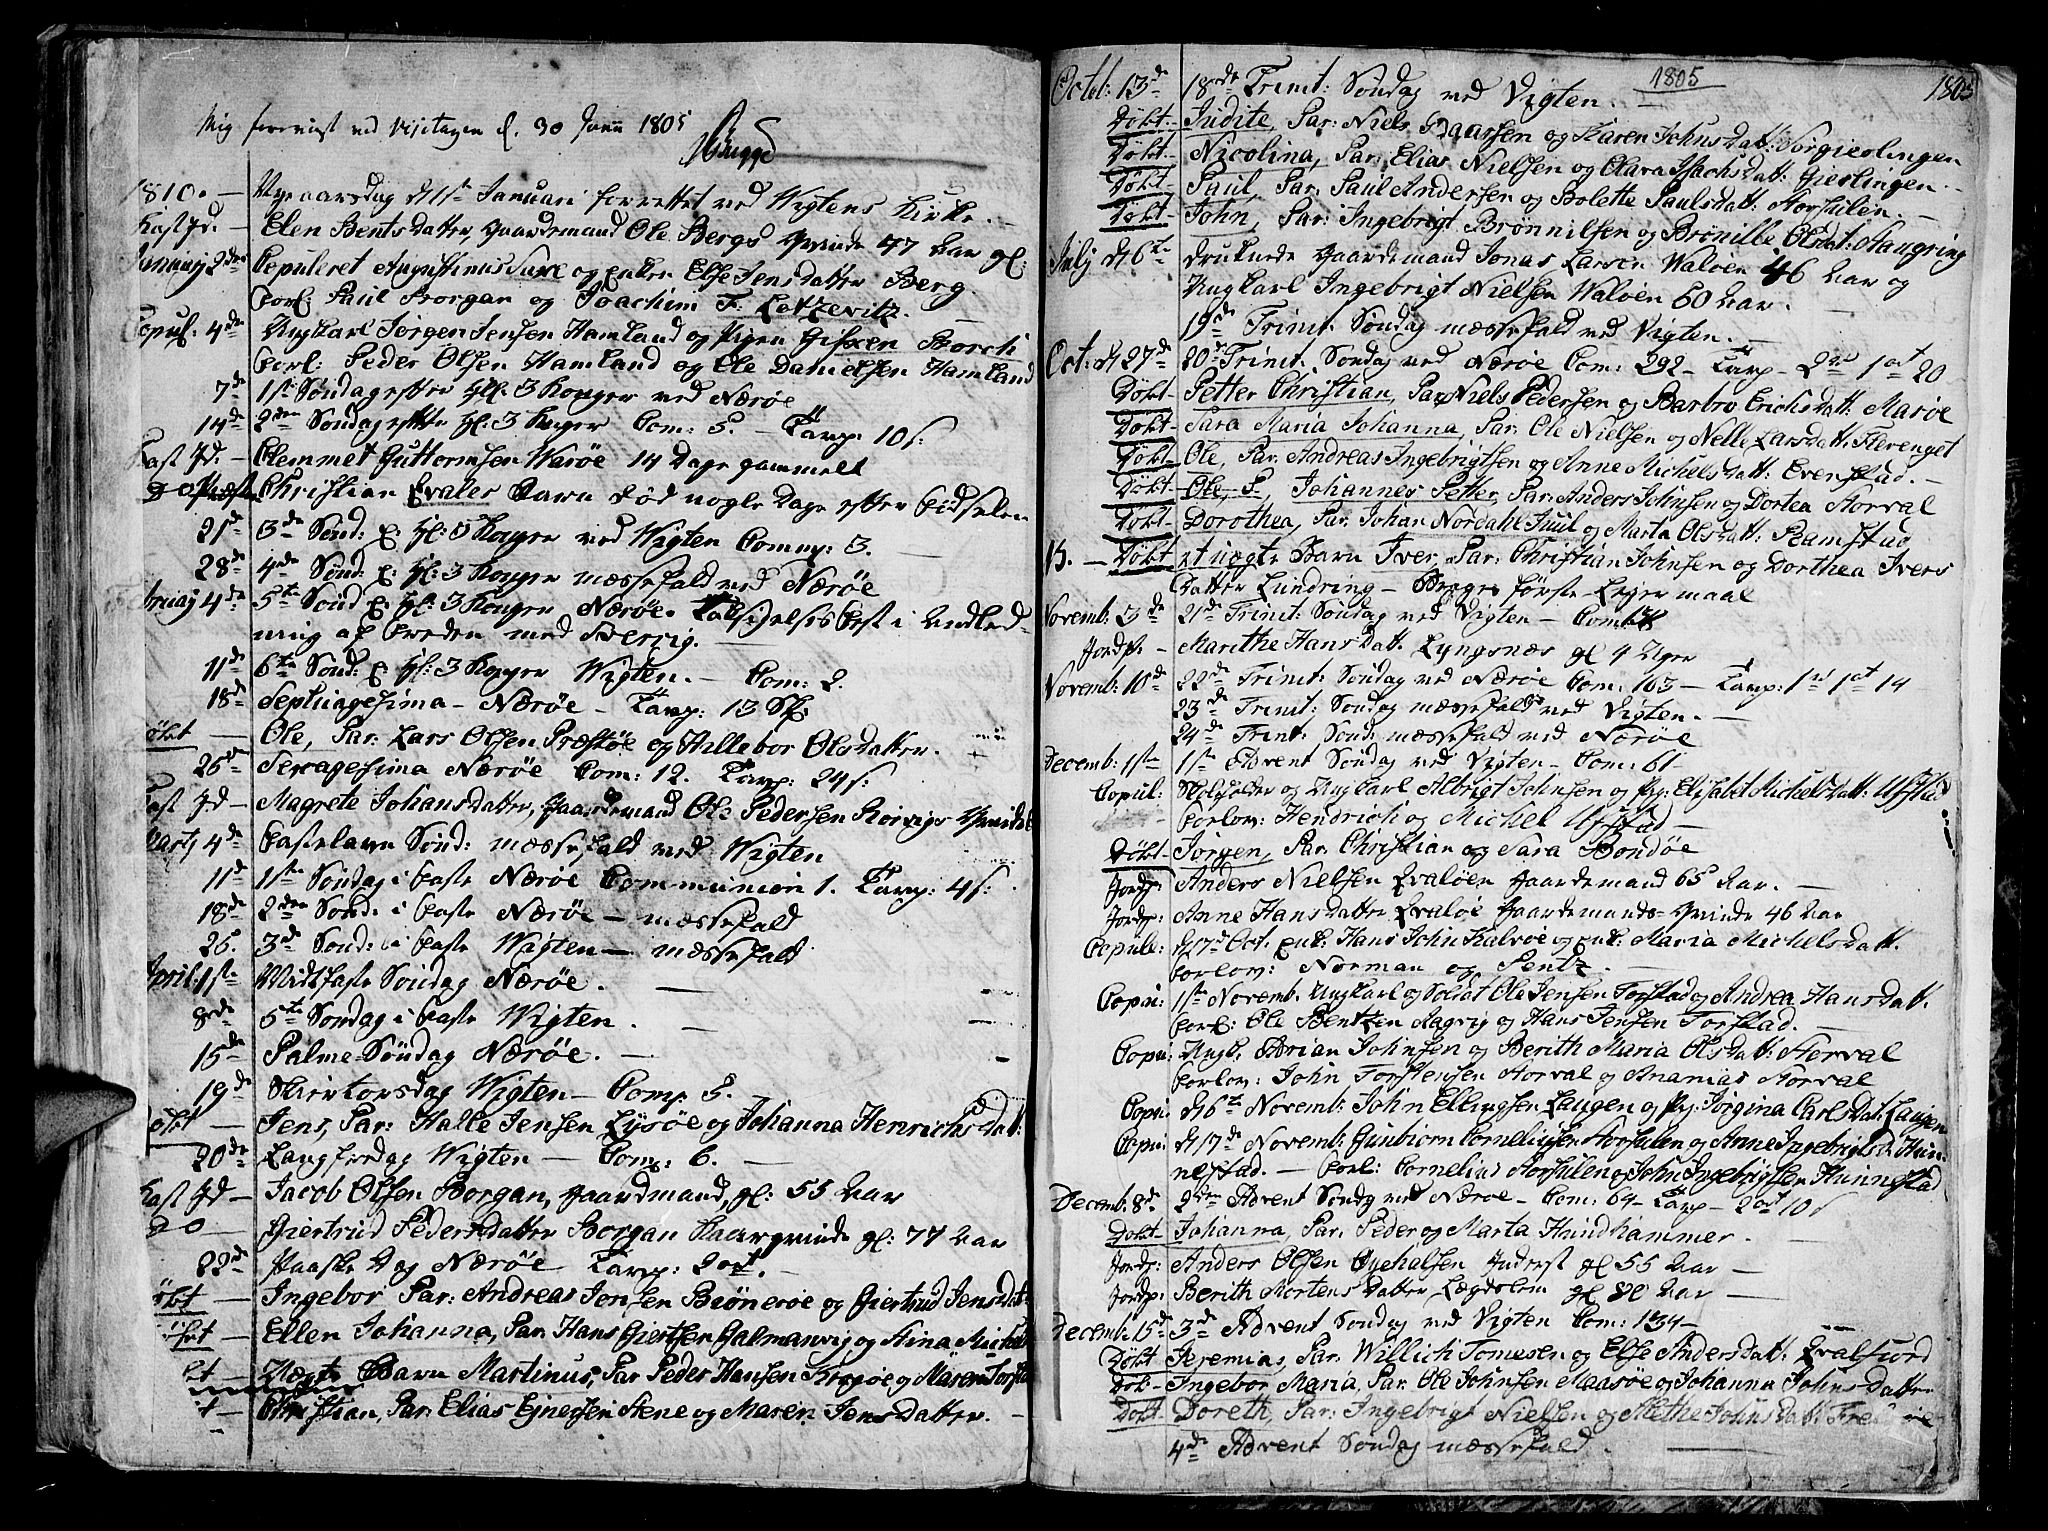 Mig foreviist ved Visitazen d. 30 Junii 1805
Bugge
1810. — Nye aarsdag d 1ste Januari forrettet ved Wigtens Kirke. —
Kast Jd. — Elen Bents Datter, Gaardemand Ole Bergs Qvinde 47 Aar gl:
Januarj 2den Copuleret Augustinus Saxe og Enken Else Jensdatter Berg
Forl: Paul Borgan og Joachim F. Letzevitz.
Copul. 4de Ungkarl Jørgen Jensen Hamland og Pigen Gifken Borch
Forl: Peder Olsen Hamland og Ole Danielsen Hamland
7de 1ste Søndag efter Hl: 3 Konger ved Nærøe
14de 2den Søndag efter Hl: 3 Konger Com: 5. — Tavp: 10 s:
Kast Jd. — Clemmet Guttormsen Warøe 14 Dage gammelt
Christian Evales Barn død nogle Dage efter Fødselen
21de 3de Sønd: E. Hl: 3 Konger ved Wigten Comm: 3. —
28de 4de Sønd: E. Hl: 3 Konger messefald ved Nærøe
bruarj 4de 5te Sønd E. Hl: 3 Konger Nærøe. Taksigelses Fest i Anled-
ning af Freden med Sverrig. —
11de 6te Sønd: E. Hl: 3 Konger Wigten. — Com: 2.
18de Septuagesima — Nærøe — Tavp: 13 Sk:
Døbt — Ole, Par: Lars Olsen Præstøe og Hillebor Olsdatter.
25de Sexagesima Nærøe Com: 12. Tavp: 24 s:
Kast Jd — Magrete Johansdatter, Gaardemand Ole Pedersen Rørvigs Qvinde
Marty 4de Fastelavn Sønd: messefald ved Wigten
11de 1ste Søndag i Faste Nærøe Communion 1. Tavp: 4 s:
18de 2den Sønd: i Faste Nærøe — messefald
25. 3de Sønd: i Faste Wigten — messefald
April: 1ste Midfaste Søndag Nærøe. —
8de 5te Søndag i Faste Wigten. —
15de Palme Søndag Nærøe. —
19de Skiertorsdag Wigten — Com: 5.
Døbt — Jens, Par: Halle Jensen Lysøe og Johanna Henrichs Dat:
20de Langfredag Wigten — Com: 6. —
Kast Jd — Jacob Olsen Borgan, Gaardmand, gl: 55 Aar
Do — Giertrud Peders Datter Borgan gl: 77 Aar
22de Paaske Dag Nærøe Tavp: 2 ort. —
Døbt — Ingebor Par: Andreas Jensen Biønerøe og Giertrud Jens Dat:
Døbt — Ellen Johanna, Par: Hans Giertsen Galmanvig og Stina Michels
t — Uægte Barn Martinus, Par Peder Hansen
t — Christian, Par: Elias Ejnersen Stene og Maren Jens Datter. —
1805
1805
Octob: 13de 18de Trinit: Søndag ved Vigten. —
Døbt. Judite, Par: Niels Baarsen og Karen Johns Datt:
Døbt Nicolina, Par: Elias Nielsen og Clara Isachs Datt: Gierlingen. —
Døbt Paul, Par: Paul Andersen og Bolette Paulsdatt: Horsulen. —
Døbt John, Par: Ingebrigt Brønnilsen og Brønille Olsdat:
Julj d 16te Druknede Gaardemand Jonas Larsen Waløen 46 Aar og
Ungkarl Ingebrigt Nielsen Waløen 60 Aar. —
19de Trinit: Søndag messefald ved Vigten. —
Oct: d 27de 20de Trinit. Søndag ved Nærøe Com: 292 — Tavp —
Døbt Petter Christian, Par: Niels Pedersen og Barbro Erichs Datt: Marøe
Døbt Sara Maria Johanna, Par. Ole Nielsen og Nelle Lars Datt: Flerenget
Døbt Ole, Par. Andreas Ingebrigtsen og Anne Michels Datt: Evenstad. —
Døbt Ole, P, Johannes Petter, Par: Anders Johnsen og Dortea Horval
Døbt Dorothea, Par. Johan Nordahl Juul og Marta Ols Datt: Ramstad
15. — Døbt et uægte Barn Iver, Par: Christian Johnsen og Dorthea Ivers
Datter Lundring — Begges første Lejermaal
Novemb: 3de 21de Trinit: Søndag ved Vigten — Com:
Jordp. — Marithe Hans Datt. Lyngsnæs gl 4 Uger
Novemb: 10de 22de Trinit: Søndag ved Nærøe Com: 163 — Tavp: 1 rd 1 ort 14
23de Trinit: Søndag messefald ved Vigten. —
24de Trinit: Sønd: messefald ved Nærøe
Decemb: 1ste 1ste Advent Søndag ved Vigten — Com: 61
Copul: og Ungkarl Albrigt Johnsen og Pig: Elisabet Michels Datt: Ufstad
Forlov: Hendrich og Michel Ufstad —
Døbt Jørgen, Par. Christian og Sara Bondøe
Jordp: Anders Nielsen Evaløen Gaardemand 65 Aar. —
Jordp: Anne Hans Datter Evaløe Gaardemands Qvinde 46 Aar
Copul: d 17de Oct. Enk: Hans John Kalvøe og Enk: Maria Michels Datt.
Forlov: Norman og Pentz. —
Copu: 1ste Novemb. Ungkarl og Soldat Ole Jensen Torstad og Andrea Hans Datt.
Forl: Ole Bentzen Aagvig og Hans Jensen Torstad. —
Copu: Ungk. Adrian Johnsen og Berith Maria Ols Datt: Horval
Forlov: John Torstensen Horval og Ananias Horval
Copu: d 16te Novemb: John Ellingsen Laugen og Pig: Jørgina Carls Dat: Laugen
Copu: d 17de Novemb: Gunbiorn Cornelissen Horsulen og Anne Ingebrigts D. Hun-
nestad. — Forl: Cornelius Horsulen og John Ingebrigtsen Hunnestad
Decemb: 8de 2den Advent Søndag ved Nærøe — Com: 64 — Tavp — 2 ort 10 s
Døbt Johanna, Par: Peder og Marta Hundhammer. —
Jordp: Anders Olsen Øyehalsen Inderst gl 55 Aar —
Jordp: Berith Mortens Datter Lægdslem gl 80 Aar —
Decemb: 15de 3de Advent Søndag ved Vigten Com: 134 —
Døbt Jeremias, Par: Willich Tomesen og Else Anders Datt: Evalfiord
Døbt Ingebor Maria, Par. Ole Johnsen Maasøe og Johanna Johns Datter
Døbt Doreth, Par: Ingebrigt Nielsen og Methe Johns Datt:
4de Advent Søndag messefald. —